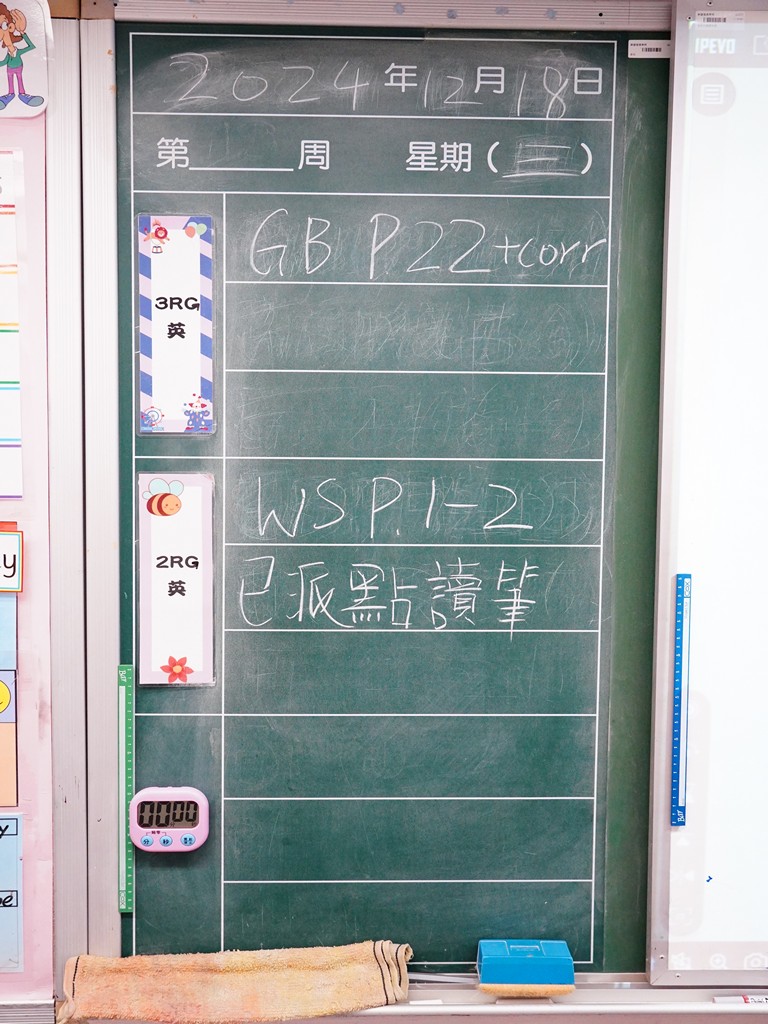 2024年12月18日
第______周 星期(三)
GB P22+corr
3RG
英
WS P.1-2
2RG
英
已派點讀筆
00 00
分 秒
IPEVO